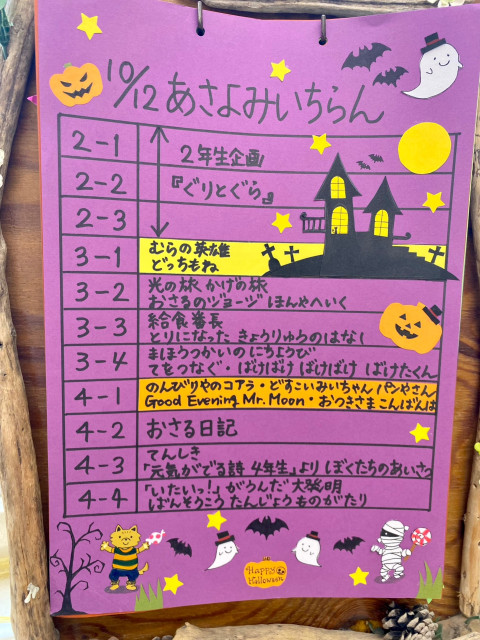 10/12 あさよみいちらん
2-1
2年生企画
2-2
『ぐりとぐら』
2-3
3-1
むらの英雄
どっちもね
3-2
光の旅 かげの旅
おさるのジョージ ほんやへいく
3-3
給食番長
とりになった きょうりゅうのはなし
3-4
まほうつかいの にちようび
てをつなぐ・ばけばけ ばけばけ ばけたくん
4-1
のんびりやのコアラ・どすこいみいちゃん パンやさん
Good Evening Mr. Moon・おつきさまこんばんは
4-2
おさる日記
4-3
てんしき
「元気がでる詩 4年生」より ぼくたちのあいさつ
4-4
「いたいっ!」がうんだ大発明
ばんそうこう たんじょうものがたり
Happy
Halloween